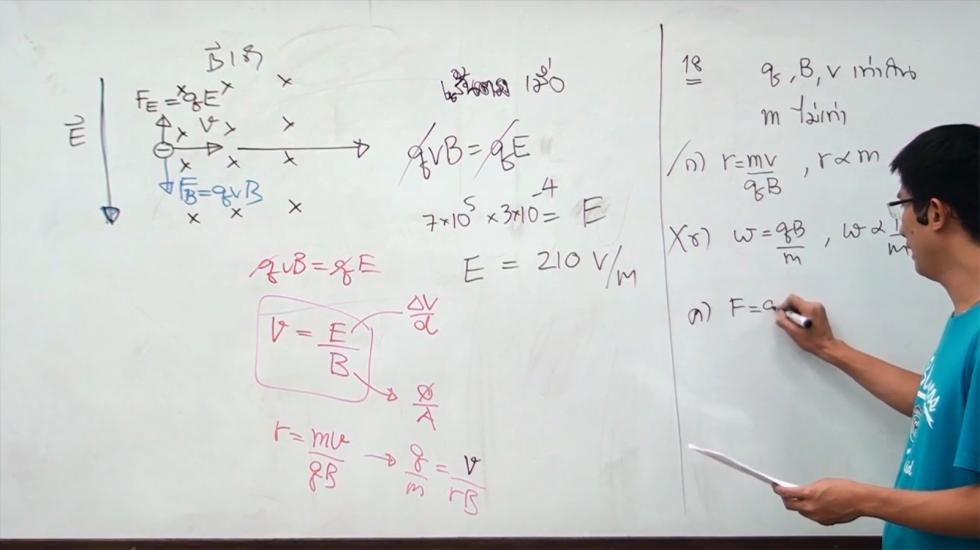 B⃗ เข้า
E⃗
F_E = qE
v
F_B = qvB
เส้นตรง เมื่อ
qvB = qE
7×10⁵ × 3×10⁻⁴ = E
E = 210 V/m
qvB = qE
v = E/B
ΔV/d
Ø/A
r = mv/qB → q/m = v/rB
18
q, B, v เท่ากัน
m ไม่เท่า
/ก) r = mv/qB , r ∝ m
Xข) ω = qB/m , ω ∝ 1/m
ค) F = q